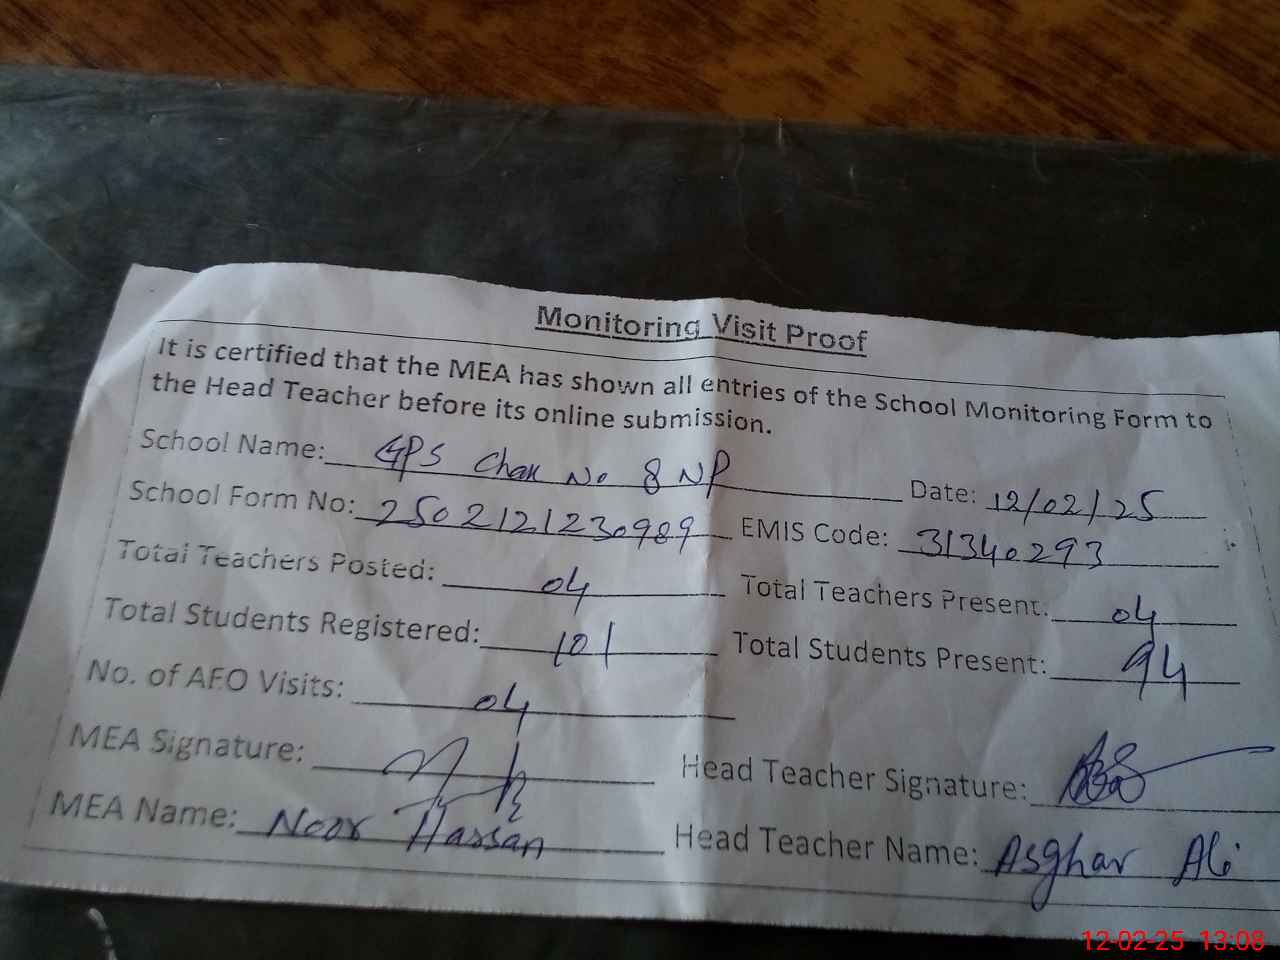 Monitoring Visit Proof
It is certified that the MEA has shown all entries of the School Monitoring Form to
the Head Teacher before its online submission.
School Name: GPS Chak No 8 NP Date: 12/02/25
School Form No: 2502121230989 EMIS Code: 31340293
Total Teachers Posted: 04 Total Teachers Present: 04
Total Students Registered: 101 Total Students Present: 94
No. of AEO Visits: 04
MEA Signature: Head Teacher Signature:
MEA Name: Noor Hassan Head Teacher Name: Asghar Ali
12-02-25 13:08